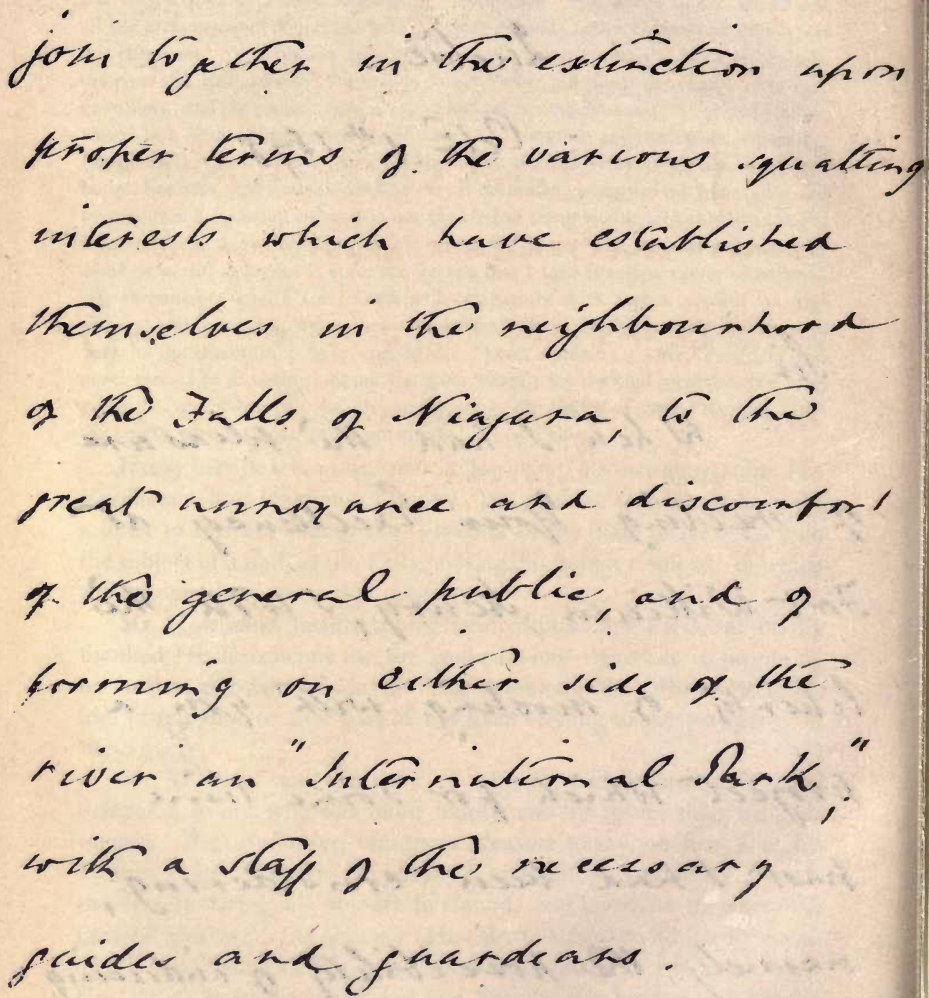 join together in the extinction upon
proper terms of the various squatting
interests which have established
themselves in the neighbourhood
of the Falls of Niagara, to the
great annoyance and discomfort
of the general public, and of
forming on either side of the
river an "International Park,"
with a staff of the necessary
guides and guardians.